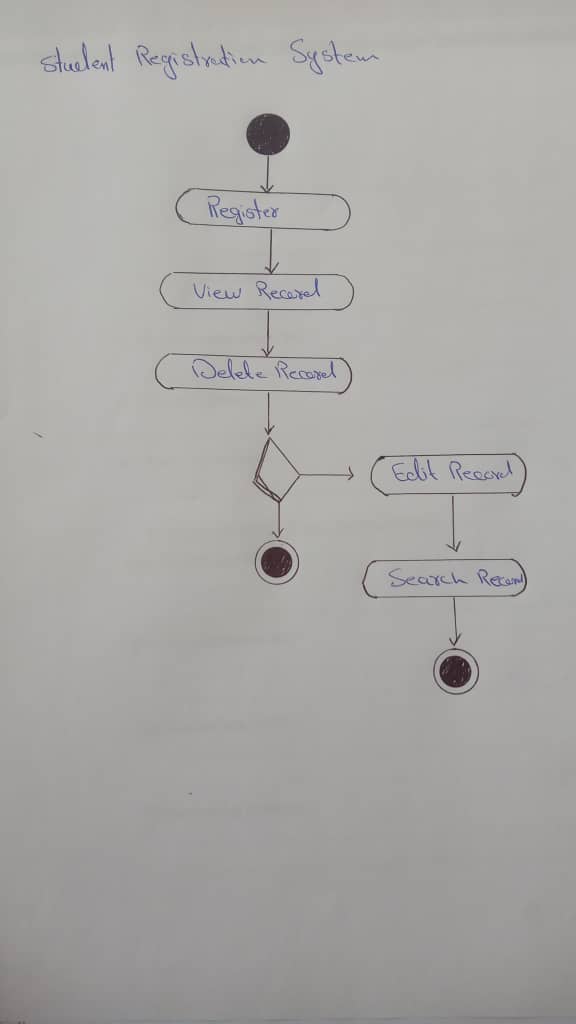 Student Registration System
Register
View Record
Delete Record
Edit Record
Search Record